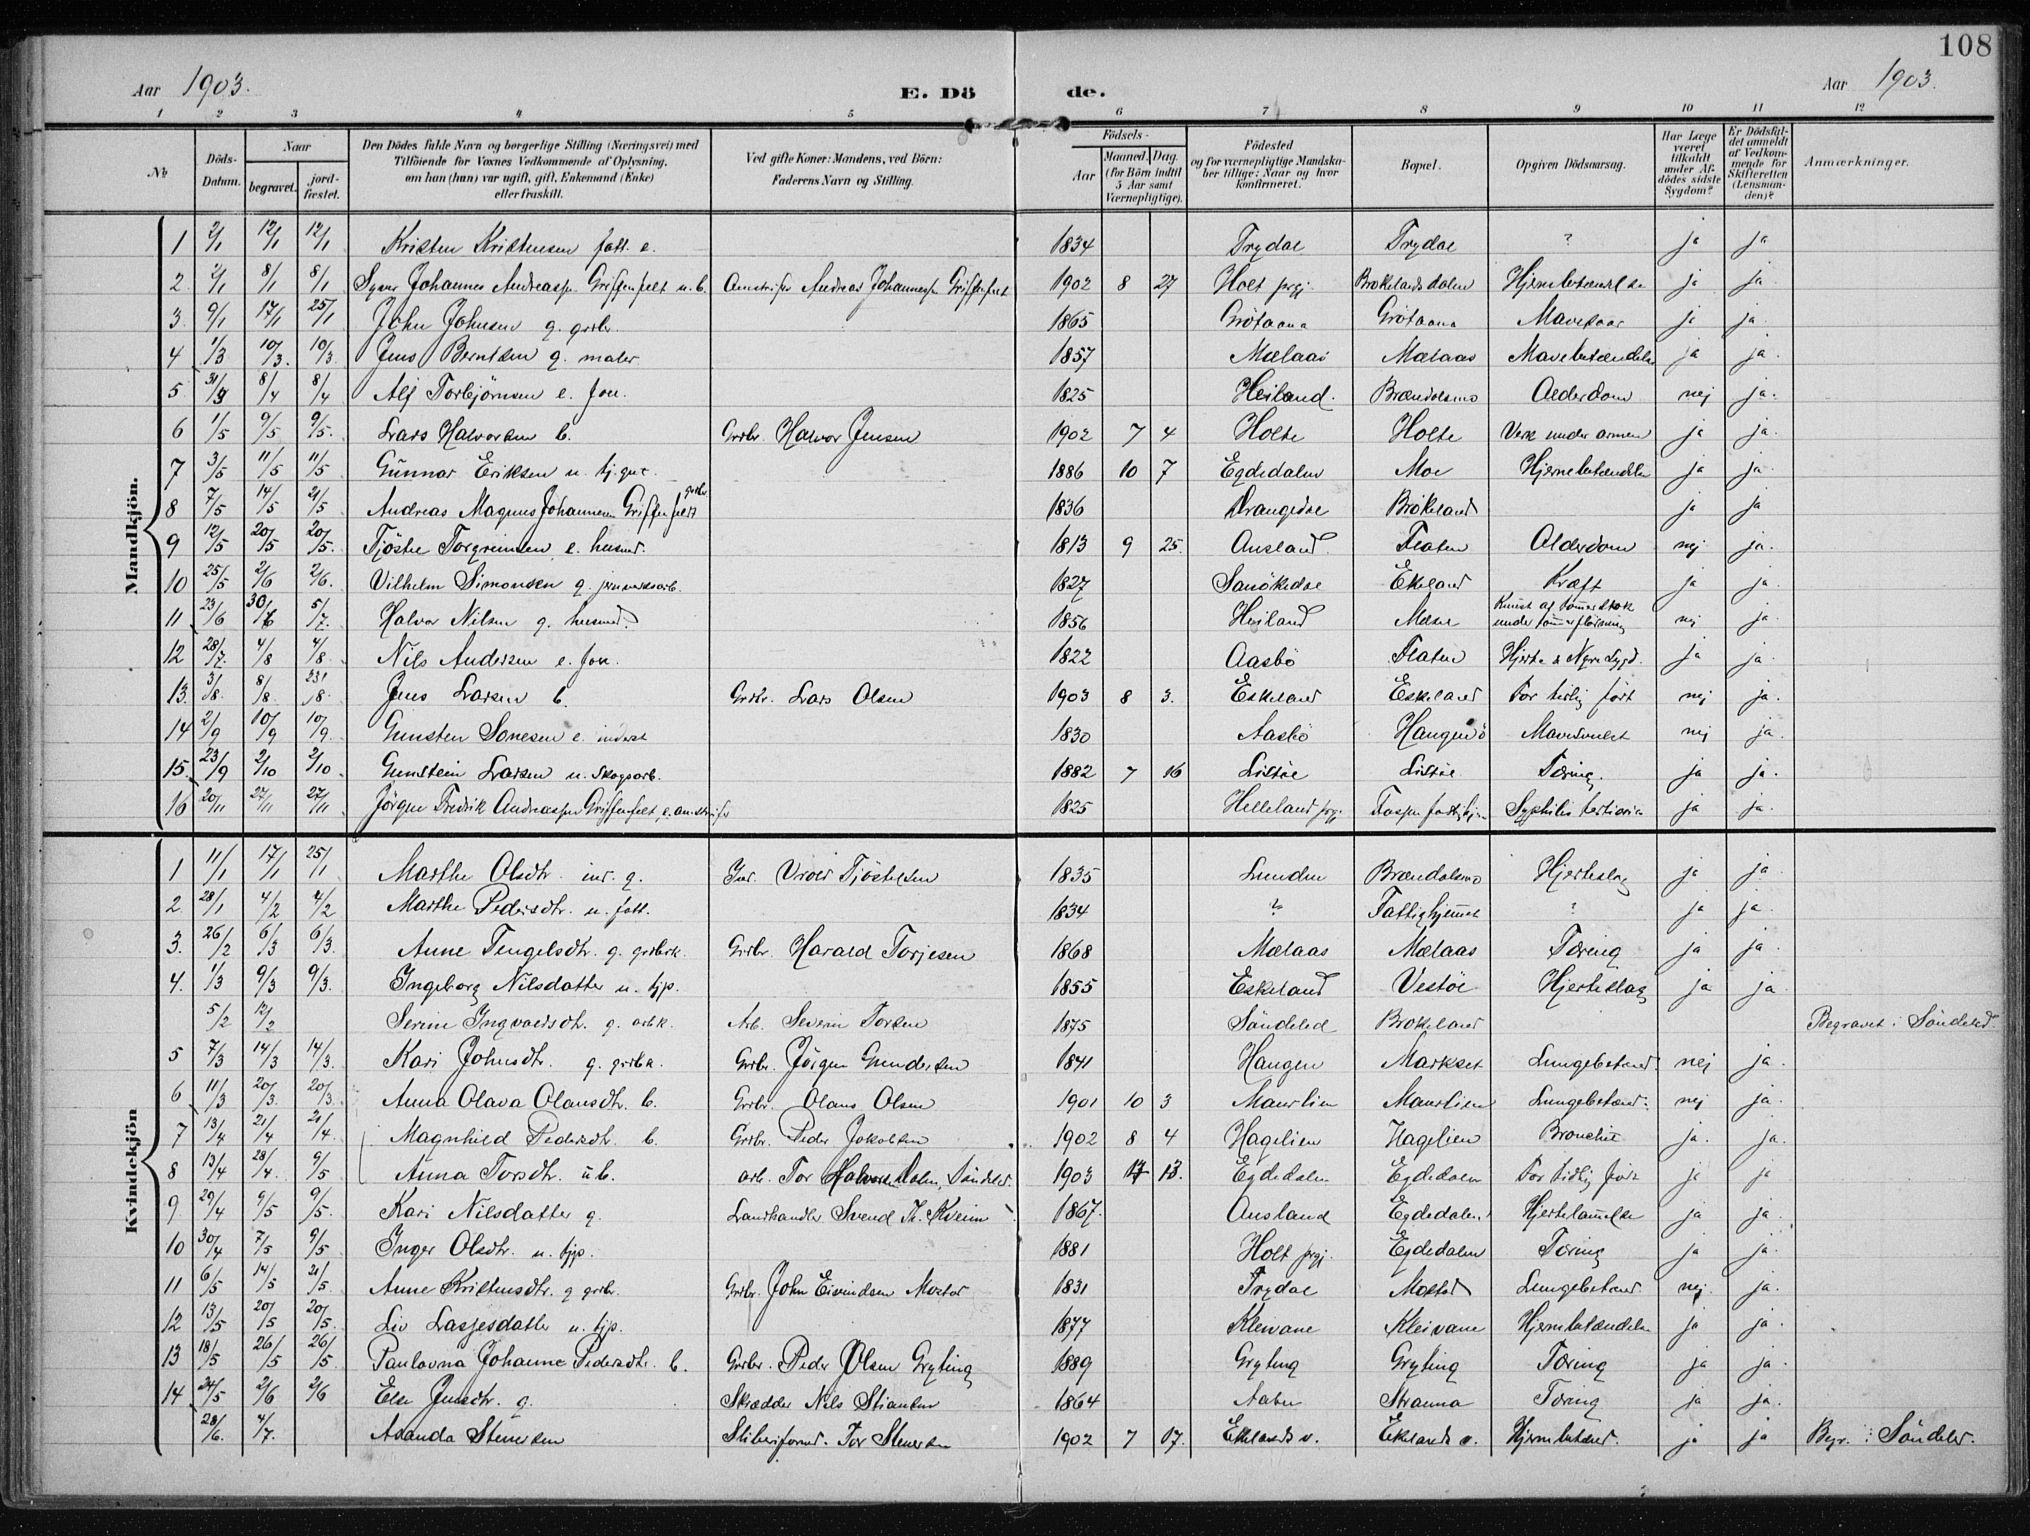 108
Aar 1903. E. Dö de. Aar 1903.
1 2 3 4 5 6 7 8 9 10 11 12
№ Döds-Datum. Naar begravet. jord-fæstet. Den Dödes fulde Navn og borgerlige Stilling (Næringsvei) med Tilföiende for Voxnes Vedkommende af Oplysning, om han (hun) var ugift, gift, Enkemand (Enke) eller fraskilt. Ved gifte Koner: Mandens, ved Börn: Faderens Navn og Stilling. Födsels- Aar Maaned. Dag. (for Börn indtil 5 Aar samt Værnepligtige). Födested og for værnepligtige Mandskaber tillige: Naar og hvor konfirmeret. Bopæl. Opgiven Dödsaarsag. Har Læge været tilkaldt under Afdödes sidste Sygdom? Er Dödsfaldet anmeldt af Vedkommende for Skifteretten (Lensmanden)? Anmærkninger.
Mandkjön.
1 2/1 12/1 12/1 Kristen Kristensen fatt. e. 1834 Trydal Trydal ? ja ja
2. 2/1 8/1 8/1 Johannes Andreassn Griffenfelt u.b. Andreas Johannessn Griffenfelt 1902 8 27 Holt prgj. Brokelandsdalen Hjernebetændelse ja ja
3. 9/1 17/1 25/1 John Johnsen g. grdbr. 1865 Grötaana Grötaana Mavesaar ja ja
4 1/3 10/3. 10/3. Jens Berntsen g. maler 1857 Mælaas Mælaas Mavebetændelse ja ja.
5 31/3 8/4 8/4 Alf Torbjörnsen e. 1825 Heiland. Brændalsmo Alderdom nej ja.
6 1/5 9/5 9/5. Lars Halvorsen b. Grdbr. Halvor Jensen 1902 7 4 Holte Holte Verk under armen ja ja.
7 3/5 11/5 11/5 Gunnar Eriksen u. tj.gut 1886 10 7 Egdedalen Moe Hjernebetændelse ja ja.
8 7/5 14/5 21/5 Andreas Magnus Johannessen Griffenfeldt grdbr. 1836 Drangedal Brökeland ja ja
9 12/5 20/5 20/5. Tjöstel Torgrimsen e. husmd. 1813 9 25. Ausland Flaten Alderdom nej ja.
10 25/5 2/6 2/6. Vilhelm Simonsen g. jernverksarb. 1827 Sanökedal Ekeland Kræft ja ja.
11 23/6 30/6 5/7. Halvor Nilsen g. husmd. 1856 Heiland Mæsel Knust af tömmerstok under tömmerflödning nej ja.
12 28/7. 4/8 4/8. Nils Andersen e. 1822 Aasbö Flaten Hjerte & Nyre Sygd. ja ja.
13. 3/8. 8/8 23/8. Jens Larsen b. Grdbr. Lars Olsen 1903 8 3. Eskeland Eskeland For tidlig födt nej ja.
14 2/9 10/9 10/9. Gunsten Sonesen e. inderst 1830 Aasbö Haugenö Mavesvulst nej ja.
15. 23/9 2/10 2/10. Gunstein Larsen u. Skogsarb. 1882 7 16 Lislöl Lislöl Tæring. ja ja.
16 20/11 27/11 27/11 Jörgen Fredrik Andreassn Griffenfelt, e. 1825 Helleland prgj. Syphilis tertiaria ja ja.
Kvindekjön
1 11/1 17/1 25/1 Marthe Olsdtr. ind. g. Ind. Vraal Tjöstelsen 1835 Lunden Brændalsmo Hjerteslag ja ja
2. 28/1 4/2 4/2 Marthe Pedersdtr. u. fatt. 1834 ? Fattighjemmet ? ja ja.
3. 26/2 6/3 6/3. Anne Tengelsdtr. g. grdbrk. Grdbr. Harald Torjesen 1868 Mælaas Mælaas Tæring ja ja
4. 1/3 9/3 9/3. Ingeborg Nilsdatter u. tjp. 1855 Eskeland Vestöl Hjerteslag ja ja.
5/2 12/2 Serine Ingvaldsdtr. g. arbk. Arb. Severin Torsen 1875 Söndeled Brokeland Begravet i Söndeled.
5 7/3 14/3 14/3. Kari Johnsdtr. g. grdbk. Grdbr. Jörgen Gundersen 1841 Haugen Markset Lungebetænd. nej ja.
6 11/3 20/3. 20/3. Anna Olava Olausdtr. b. Grdbr. Olaus Olsen 1901 10 3 Maurlien Maurlien Lungebetænd. nej ja.
7 13/4 21/4 21/4. Magnhild Pedersdtr. b. Grdbr. Peder Jakobsen 1902 8 4 Hagelien Hagelien Bronchit ja. ja.
8 13/4 28/4. 9/5 Anna Torsdtr. u.b. arb. Tor Halvorsen Dalen, Söndeled. 1903 13. Egdedalen Egdedalen For tidlig föd ja ja
9 29/4 9/5 9/5. Kari Nilsdatter g. Landhandler Svend Th. Kveim 1867. Ausland Egdedalen Hjertelammelse ja ja.
10 30/4 7/5 9/5 Inger Olsdtr. u. tjp. 1881 Holt prgj. Egdedalen Tæring ja ja.
11 6/5 14/5 21/5 Anne Kristensdtr. g grdbr. Grdbr. John Eivindsen Mostad 1831 Trydal Mostad Lungebetænd. nej ja.
12 13/5 20/5 20/5. Liv Lasjesdatter u. tjp. 1877 Kleivane Kleivane Hjernebetændelse ja ja.
13 18/5 26/5 26/5. Paulovna Johanne Pedersdtr. b. Grdbr. Peder Olsen Gryting 1889 Gryting Gryting Tæring ja ja.
14 24/5 2/6 2/6 Else Jensdtr. g. Skrædder Nils Stiansen 1864 Strauma Tæring ja ja.
28/6. 4/7. Amanda Stenersen Tor Stenersen 1902 7 17. Ekelands v. Ekelands v. Hjernebetænd. ja ja Begr. i Söndeled.